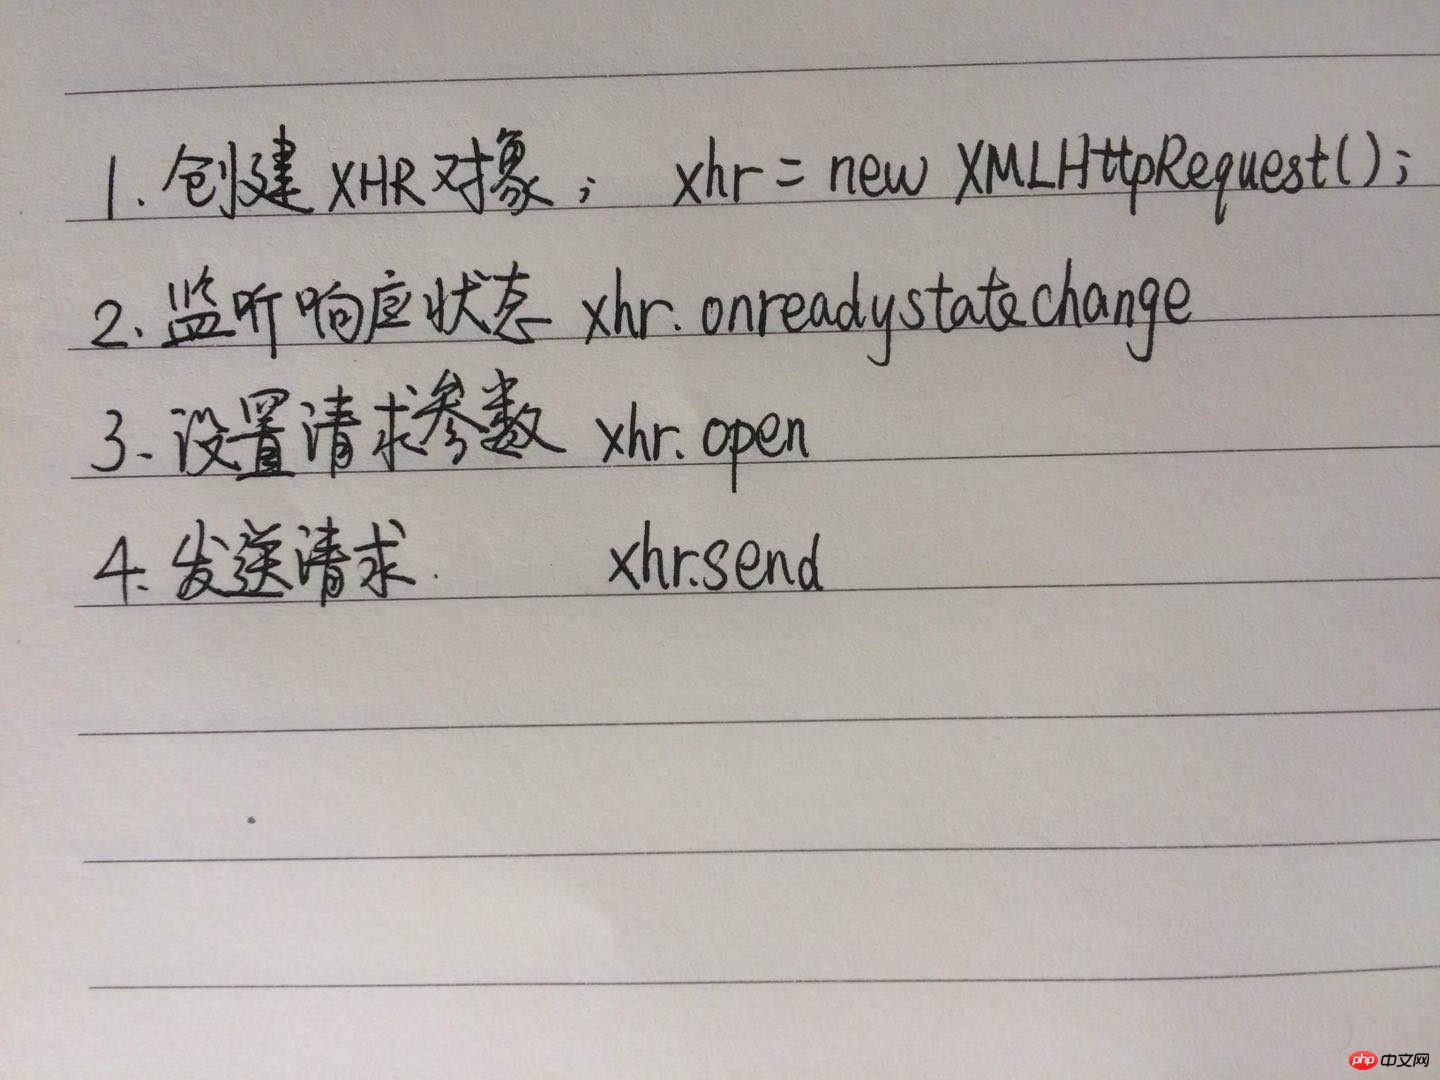 1. 创建XHR对象; xhr = new XMLHttpRequest();
2. 监听响应状态 xhr.onreadystatechange
3. 设置请求参数 xhr.open
4. 发送请求. xhr.send
php 中文网